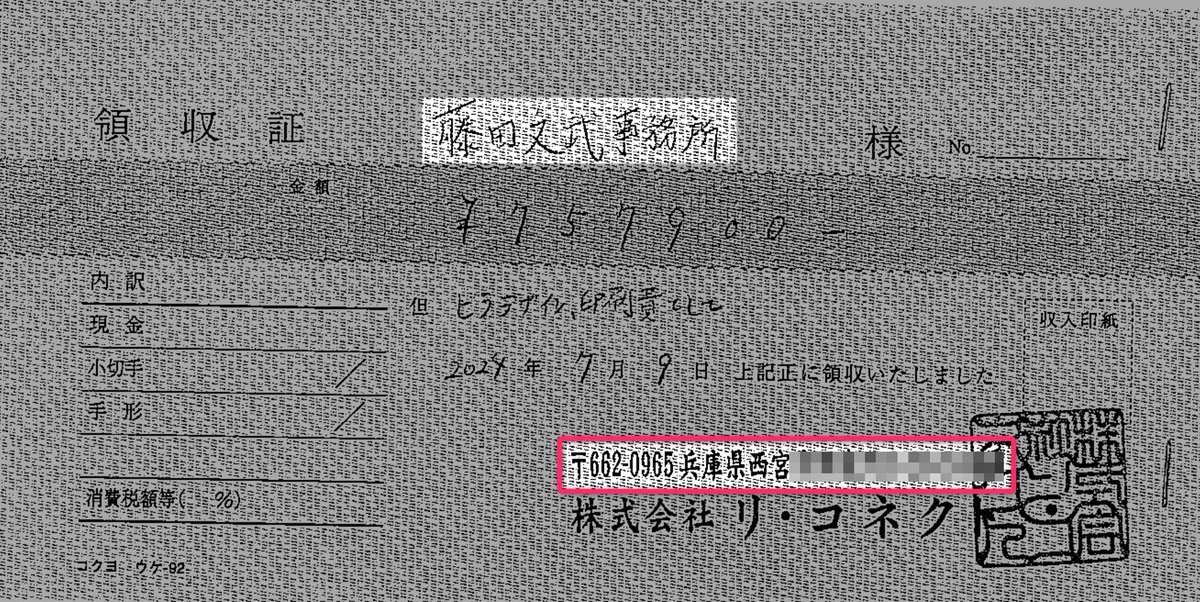 領収証 藤田文武事務所 様 No.
金額
¥757900-
内訳
現金
小切手
手形
消費税額等( %)
但 ビラデザイン、印刷費として
2024年7月9日 上記正に領収いたしました
収入印紙
〒662-0965 兵庫県西宮
株式会社 リ・コネク
コクヨ ウケ-92